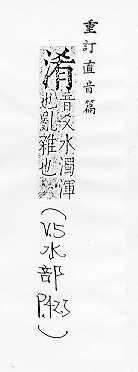 重訂直音篇
淆
音爻水濁渾
也亂雜也
(V.5水部P.423)